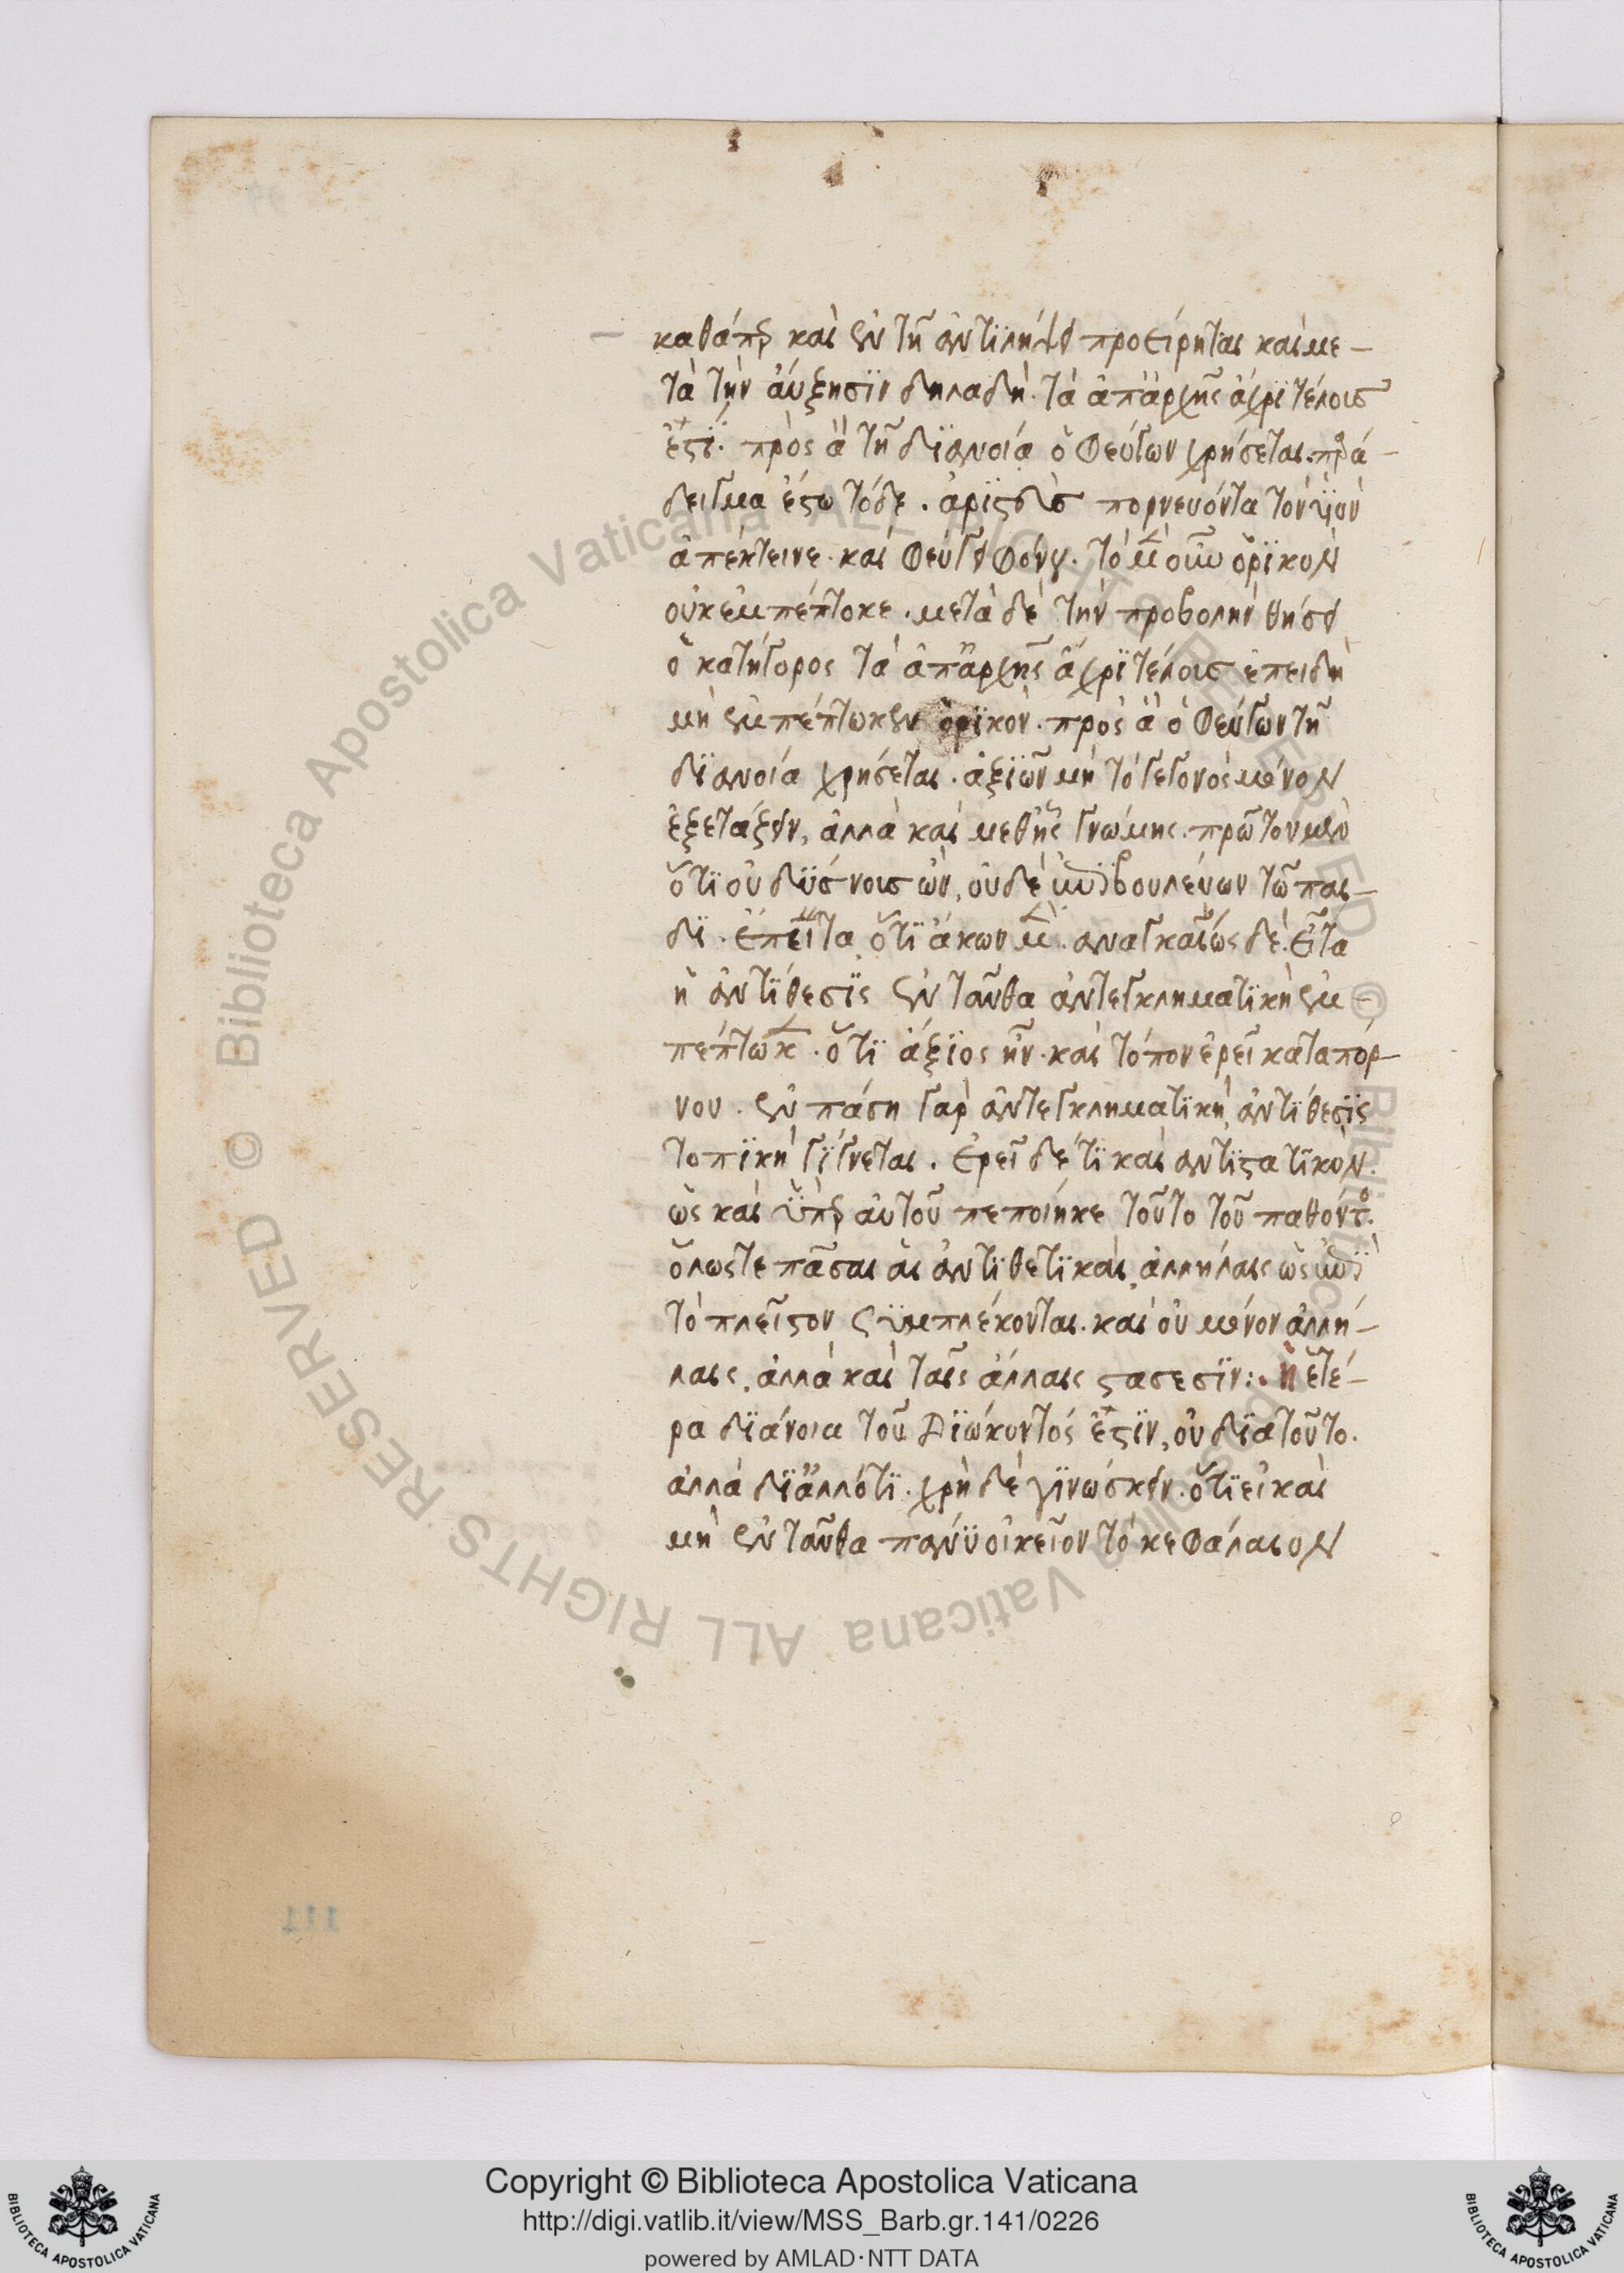 καθάπερ καὶ ἐν τῆ ἀντιλήψει προείρηται καὶ με–
τὰ τὴν ἀύξησϊν δηλαδὴ. τὰ ἀπ' ἀρχῆς ἄχρϊ τέλους
ἐστϊ. πρὸς ἃ τῆ δϊανοία ὁ φεύγων χρήσεται. παρά–
δειγμα ἔστω τόδε. ἀρϊστεὺς πορνεύοντα τὸν ϋἱὸν
ἀπέκτεινε. καὶ φεύγει φόνου. τὸ μὲν οὖν ὁρϊκὸν
οὐκ ἐμπέπτοκε. μετὰ δὲ τὴν προβολὴν θήσει
ὁ κατήγορος τὰ ἀπ' ἀρχῆς ἄχρϊ τέλους ἐπειδὴ
μὴ ἐμπέπτωκεν ὁρϊκὸν. πρὸς ἃ ὁ φεύγων τῆ
δϊανοία χρήσεται. ἀξϊῶν μὴ τὸ γεγονὸς μόνον
ἐξετάξειν, ἀλλὰ καὶ μεθ' ἧς γνώμης. πρῶτον μὲν
ὅτϊ οὐ δϋσνους ὢν, οὐδὲ ἐπιβουλεύων τῶ παι–
δϊ. ἔπειτα ὅτϊ ἄκων μὲν. ἀναγκαίως δὲ. εἶτα
ἡ ἀντϊθεσϊς ἐνταῦθα ἀντεγκληματϊκὴ ἐμ–
πέπτωκεν. ὅτϊ ἄξϊος ἦν. καὶ τόπον ἐρεῖ κατὰ πόρ–
νου. ἐν πάση γὰρ ἀντεγκληματϊκῆ ἀντϊθεσϊς
τοπϊκὴ γϊγνεται. ἐρεῖ δέ τϊ καὶ ἀντϊστατϊκὸν.
ὡς καὶ ϋπὲρ αὐτοῦ πεποίηκε τοῦτο τοῦ παθόντος.
ὅλως τε πᾶσαι αἱ ἀντϊθετϊκαὶ, ἀλλήλαις ὡς ἐπϊ
τὸ πλεῖστον σϋμπλέκονται. καὶ οὐ μόνον ἀλλή–
λαις, ἀλλὰ καὶ ταῖς ἄλλαις στασεσϊν:. ἡ ἑτέ–
ρα δϊάνοια τοῦ Δϊώκοντός ἐστϊν, οὐ δϊατοῦτο.
ἀλλὰ δϊ' ἄλλό τϊ. χρὴ δὲ γϊνώσκειν. ὅτϊ εἰ καὶ
μὴ ἐνταῦθα πάνϋ οἰκεῖον τὸ κεφάλαιον
Copyright © Biblioteca Apostolica Vaticana
http://digi.vatlib.it/view/MSS_Barb.gr.141/0226
powered by AMLAD·NTT DATA